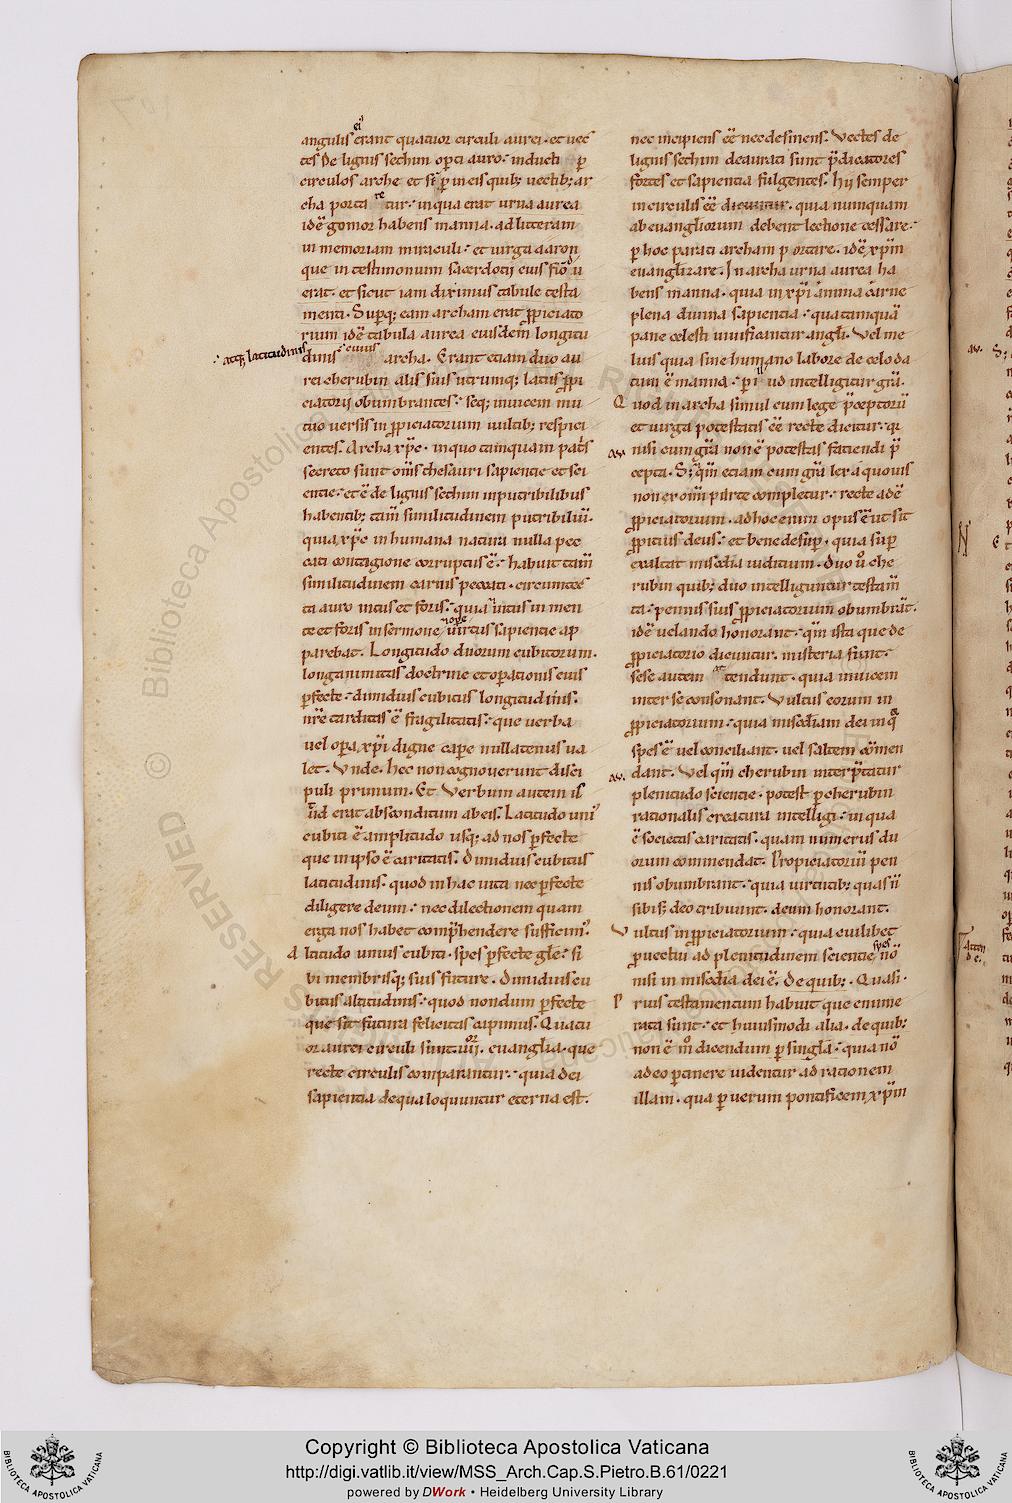 angulis ei' erant quatuor circuli aurei. et uec
tes De lignis sethim op̄ti auro. inducti p̄
circulos arche et sēp in eis quib; uectib; ar
cha portaretur. in qua erat urna aurea
idē gomor habens manna. ad litteram
in memoriam miraculi. et uirga aaron
que in testimonium sacerdotij eius
erat. et sicut iam diximus tabule testa
menti. Sup̄q; eam archam erat p̄piciato
rium idē tabula aurea eiusdem longitu
dinis atq; latitudinis cuius archa. Erant etiam duo au
rei cherubin alis suis utrumq; latus p̄pi
ciatorij obumbrantes. seq; inuicem mu
tuo uersis in p̄piciatorium uultib; respici
entes. Archa xp̄c. in quo tamquam patris
secreto sunt om̄s thesauri sapientie et sci
entie. et ē de lignis sethim inputribilibus
habentib; tam̄ similitudinem putribiliū.
quia xp̄c in humana natura nulla pec
cati contagione corruptus ē. habuit tam̄
similitudinem carnis peccati. circumtec
ta auro intus et foris. quia intus in men
te et foris in sermone ⁊ ope uirtus sapientie ap
parebat. Longitudo duorum cubitorum.
longanimitas doctrine et op̄ationis eius
p̄fecte. dimidius cubitus longitudinis.
nr̄e tarditas ē fragilitatis. que uerba
uel op̄a xp̄i digne cap̄e nullatenus ua
let. Vnde. hec non cognouerunt disci
puli primum. Et Verbum autem il
lud erat absconditum ab eis. Latitudo uni'
cubiti ē amplitudo usq; ad nos p̄fecte
que in ipso ē caritatis. Dimidius cubitus
latitudinis. quod in hac uita nec p̄fecte
diligere deum. nec dilectionem quam
erga nos habet comp̄hendere sufficim'.
Altitudo unius cubiti. spes p̄fecte glē. si
bi membrisq; suis future. Dimidius cu
bitus altitudinis. quod nondum p̄fecte
que sit futura felicitas capimus. Quatu
or aurei circuli sunt .iiii. euanglia. que
recte circulis comparantur. quia dei
sapientia de qua loquuntur eterna est.
nec incipiens ēē nec desinens. Vectes de
lignis sethim deaurati sunt p̄dicatores
fortes et sapientia fulgentes. hij semper
in circulis ēē dicuntur. quia numquam
ab euangliorum debent lectione cessare.
p̄ hoc parati archam portare. idē xp̄m
euanglizare. In archa urna aurea ha
bens manna. quia in xp̄i anima carne
plena diuina sapientia. qua tamquā
pane celesti uiuificantur angli. Vel me
lius quia sine humano labore de celo da
tum ē manna. p̄ illud intelligitur grā.
Quod in archa simul cum lege p̄ceptorū
et uirga potestatis ēē recte dicitur. qr
nisi cum grā non ē potestas faciendi p̄
cepta. S; qm̄ etiam cum grā lex a quouis
non ex om̄i parte completur. recte adē
p̄piciatorium. ad hoc enim opus ē ut sit
p̄pitius deus. et bene desup̄. quia sup̄
exaltat misc̄dia iuditium. Duo ū che
rubin quib; duo intelliguntur testam̄
ta. pennis suis p̄piciatorium obumbrāt.
idē uelando honorant. qm̄ ista que de
p̄piciatorio dicuntur. misteria sunt.
sese autem attendunt. quia inuicem
inter se consonant. Vultus eorum in
p̄piciatorium. quia misc̄diam dei in q̄
spes ē uel conciliant. uel saltem cōmen
dant. Vel qm̄ cherubin interp̄tatur
plenitudo scientie. potest p̄ cherubin
rationalis creatura intelligi. in qua
ē societas caritatis. quam numerus du
orum commendat. Propiciatoriū pen
nis obumbrant. quia uirtutib; quas ñ
sibi s; deo tribuunt. deum honorant.
Vultus in p̄piciatorium. quia cuilibet
p̄uectui ad plenitudinem scientie spes nō
nisi in misc̄dia dei ē. De quib;. Quasi.
Prius testamentum habuit que enume
rata sunt. et huiusmodi alia. de quib;
non ē m̊ dicendum p̄ singla. quia nō
adeo p̄tinere uidentur ad rationem
illam. qua p̄ uerum pontificem xp̄m
Copyright © Biblioteca Apostolica Vaticana
http://digi.vatlib.it/view/MSS_Arch.Cap.S.Pietro.B.61/0221
powered by DWork • Heidelberg University Library